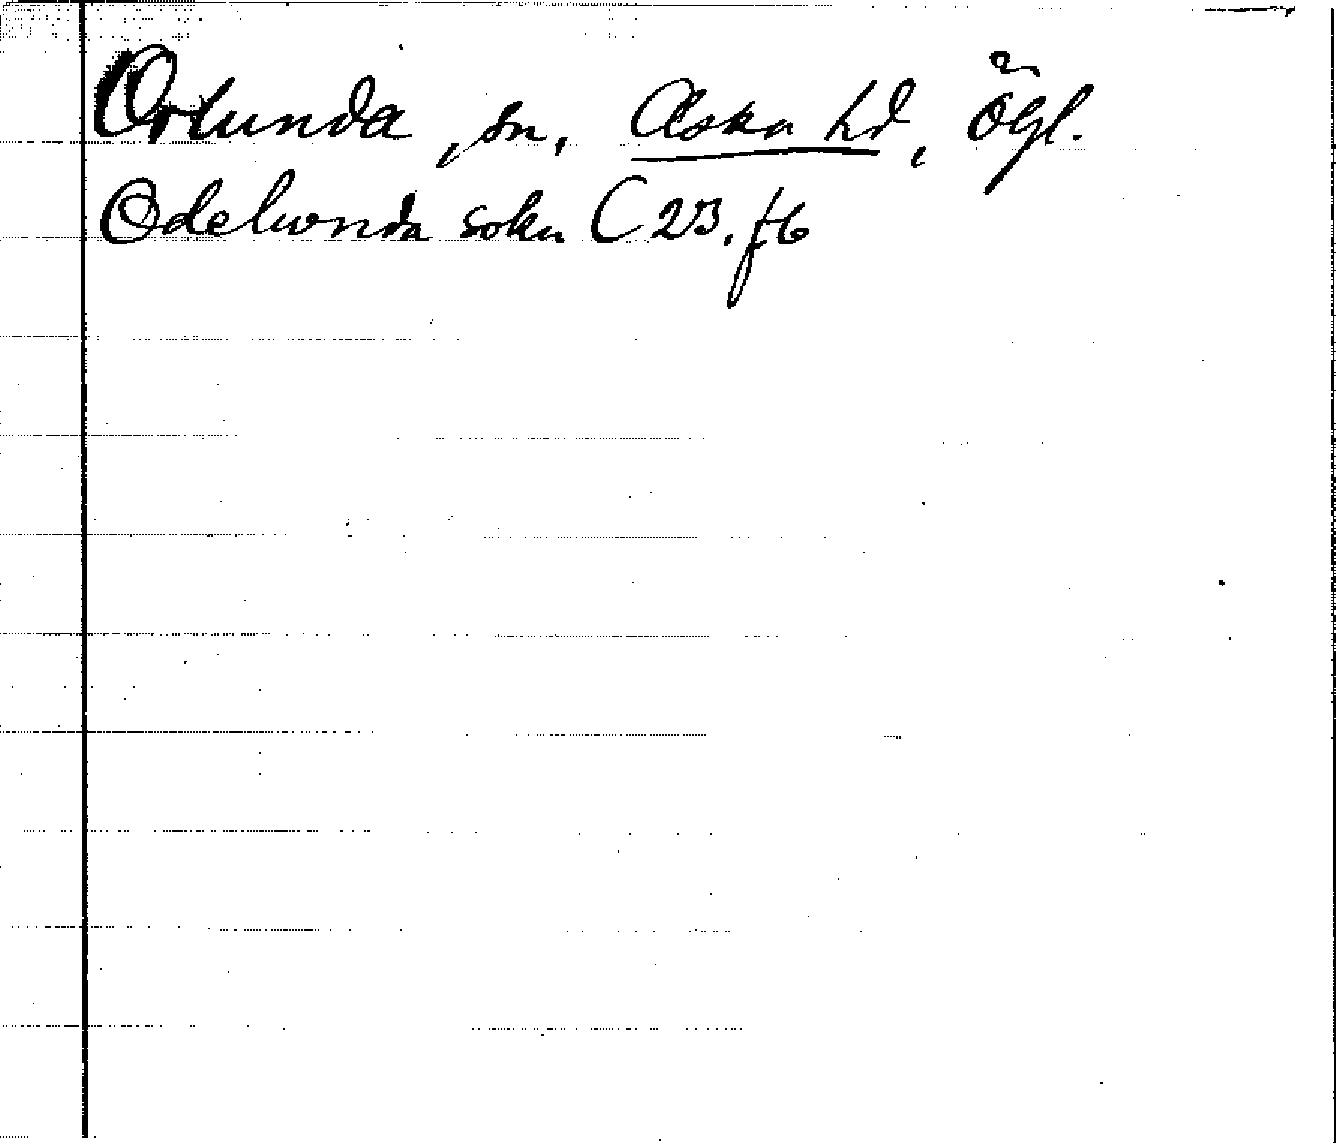 Orlunda, sn, Aska hd, Ögl.
Odelunda sokn C 23. f 6